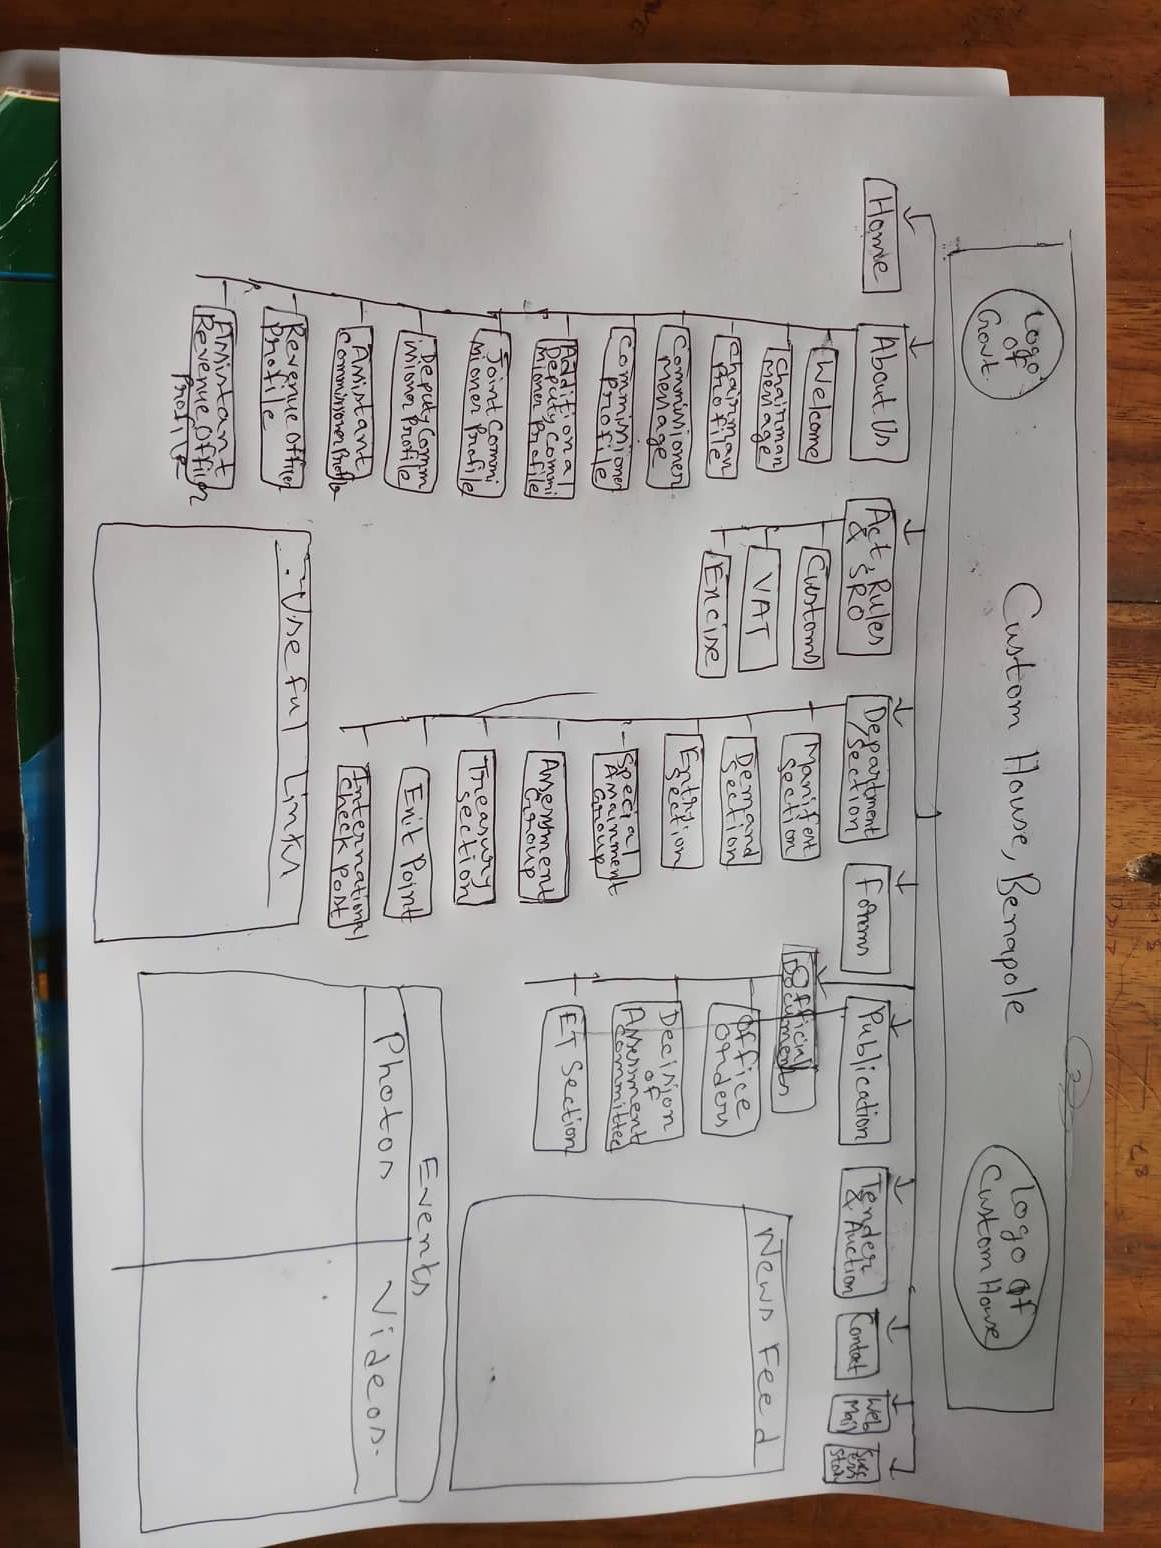 Logo
of
Govt.
Custom House, Benapole
Logo of
Custom House
Home
About Us
Welcome
Chairman
Message
Chairman
Profile
Commissioner
Message
Commissioner
Profile
Additional
Deputy Commi
ssioner Profile
Joint Commi
ssioner Profile
Deputy Comm
issioner Profile
Assistant
Commissioner Profile
Revenue Officer
Profile
Assistant
Revenue Officer
Profile
Act, Rules
& SRO
Customs
VAT
Excise
Department
/Section
Manifest
Section
Demand
Section
Entry
Section
Special
Assessment
Group
Assessment
Group
Treasury
Section
Exit Point
International
Check Post
Forms
Publication
Official
Documents
Office
Orders
Decision
of
Assessment
Committee
ET Section
Tender
& Auction
Contact
Web
Mail
Succ
ess
Story
Useful Links
News Feed
Events
Photos
Videos.